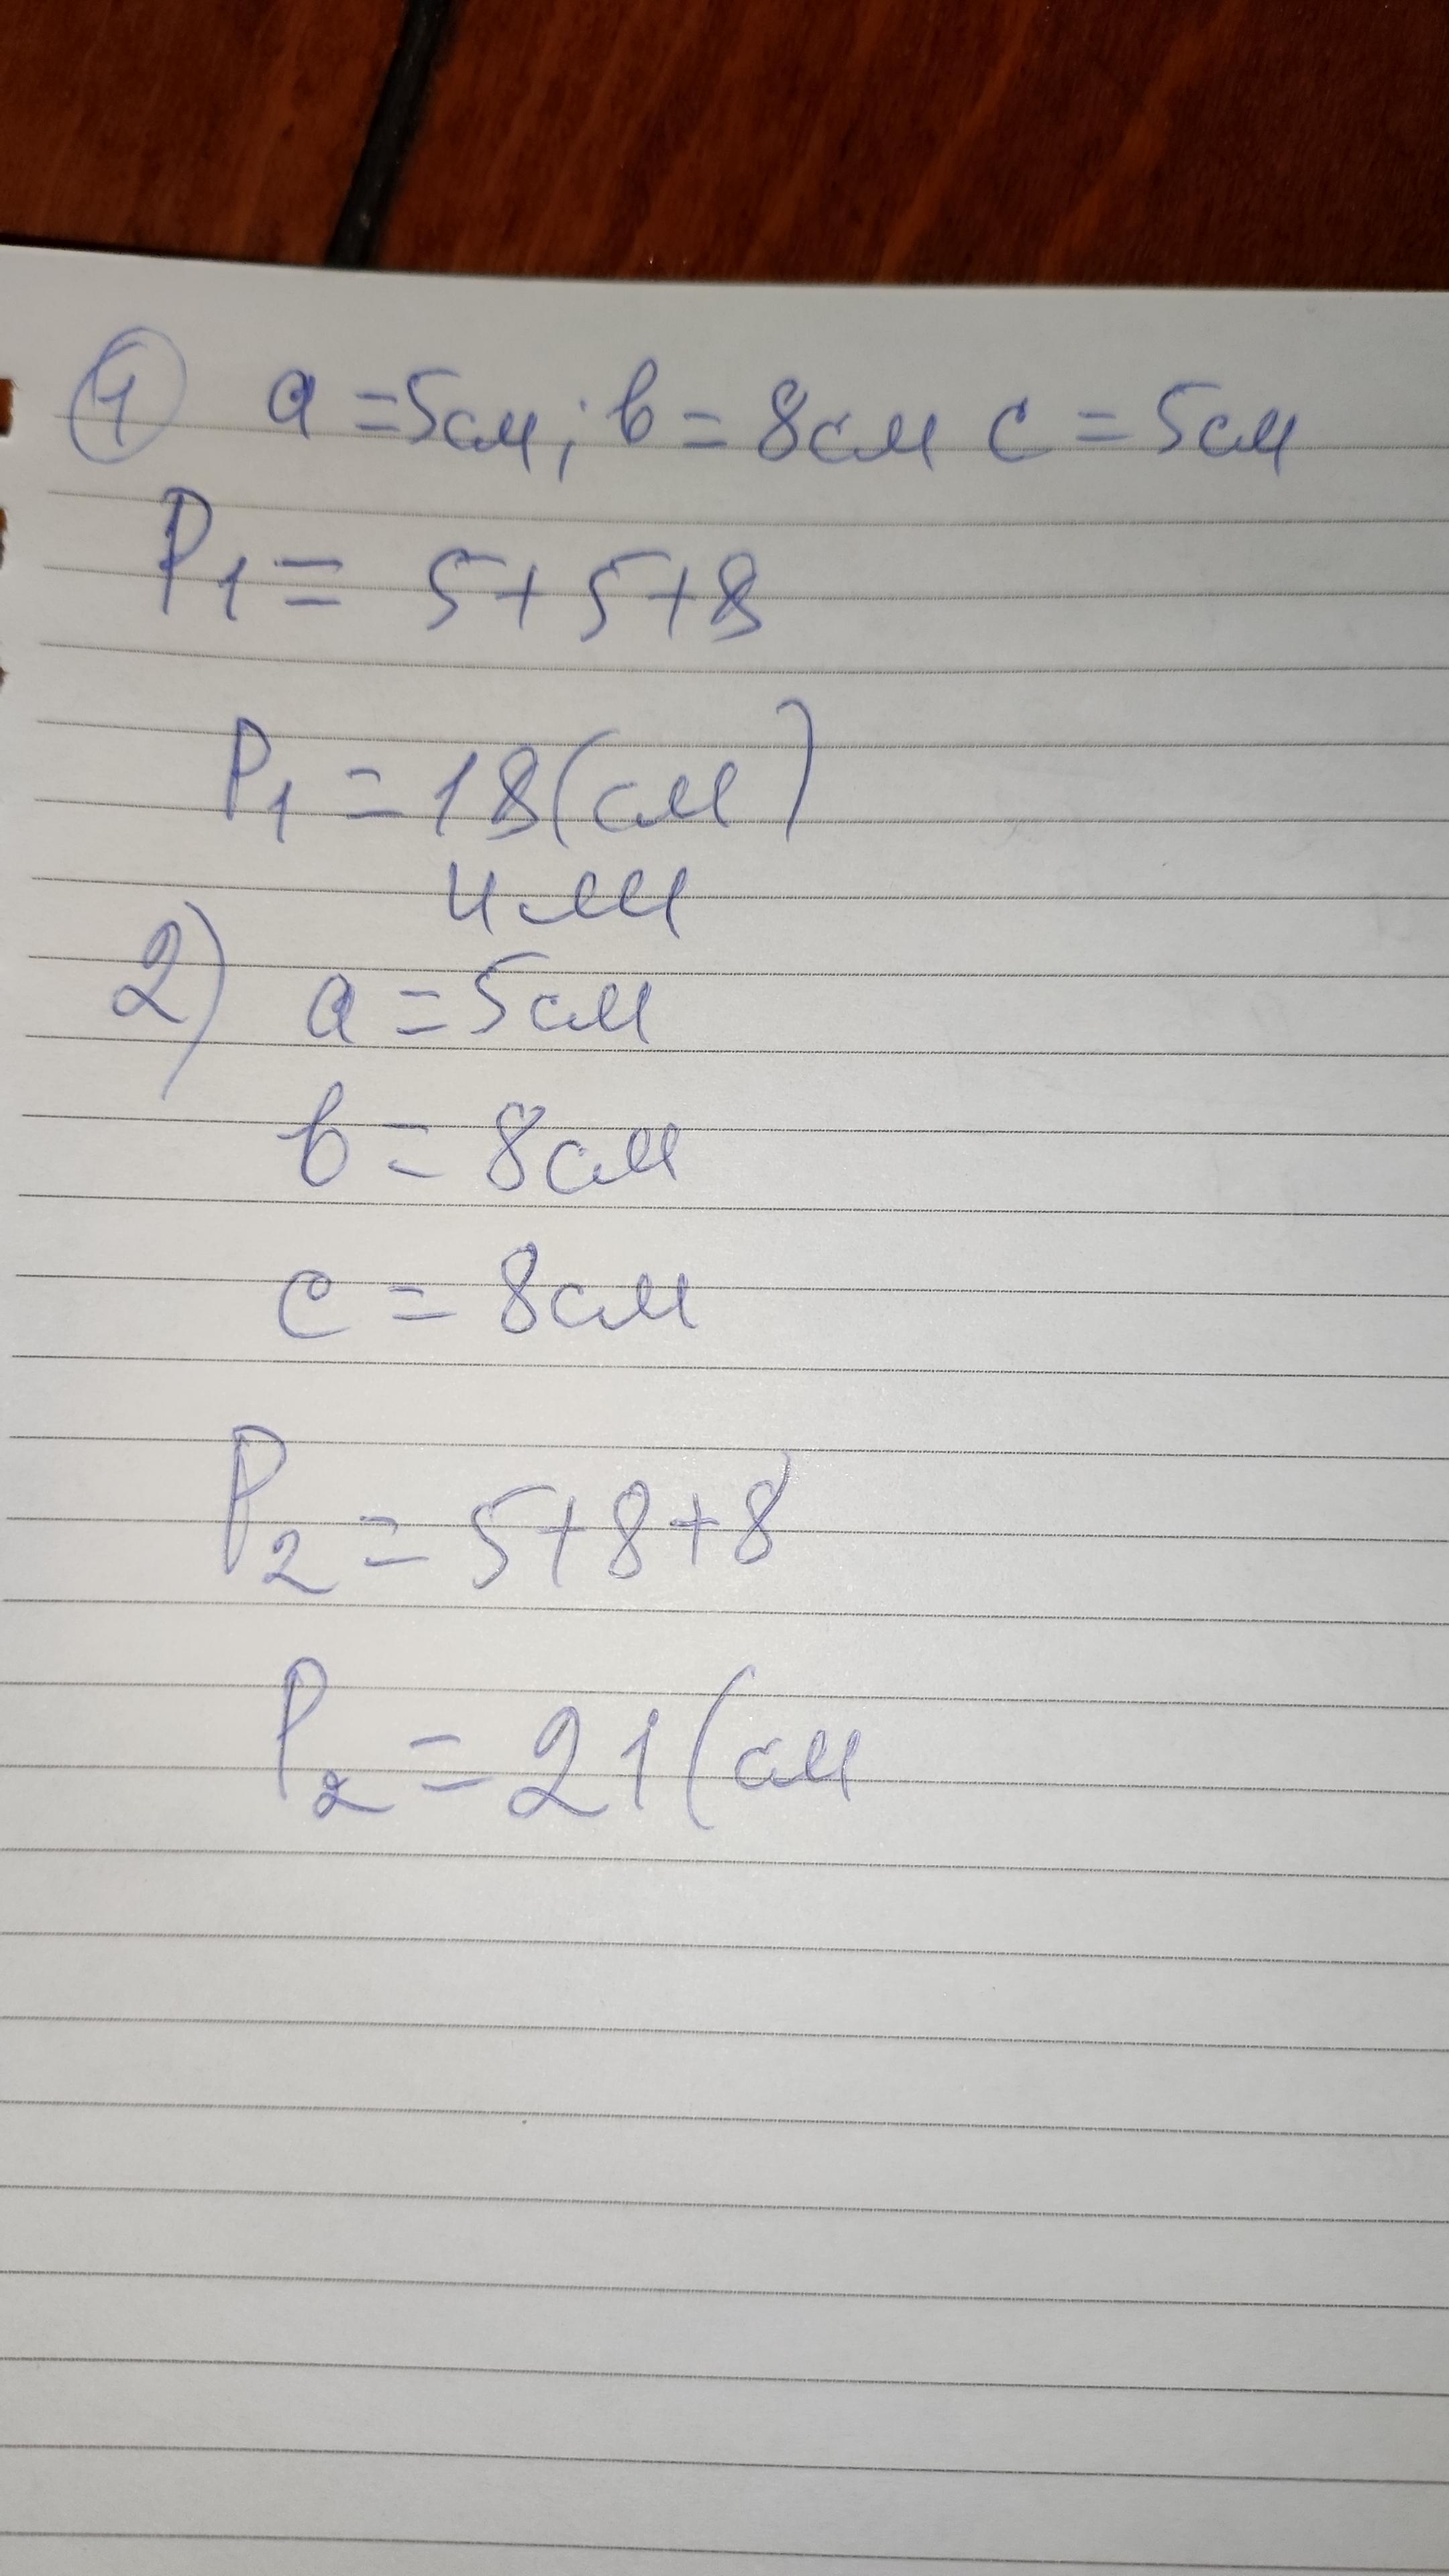 ① a = 5см; b = 8см c = 5см
P₁ = 5+5+8
P₁ = 18(см)
или
2) a = 5см
b = 8см
c = 8см
P₂ = 5+8+8
P₂ = 21(см